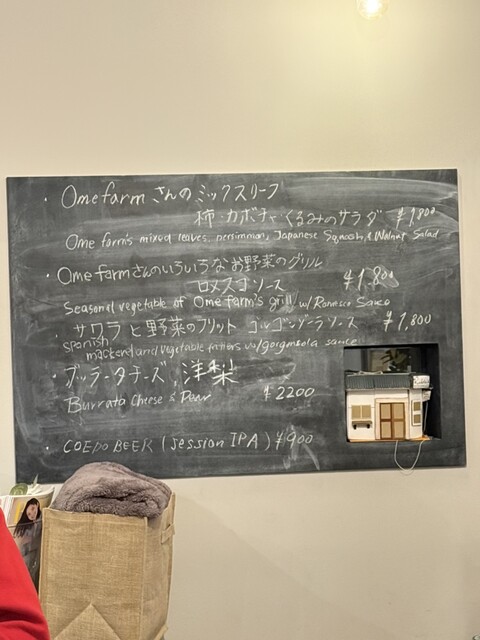 ・Ome farm さんのミックスリーフ
柿・カボチャ・くるみのサラダ ¥1,800
Ome farm's mixed leaves, persimmon, Japanese Sqaosh & Walnut Salad
・Ome farmさんのいろいろなお野菜のグリル
ロメスコソース ¥1,800
Seasonal vegetable of Ome farm's grill w/ Romesco Sauce
・サワラと野菜のフリット ゴルゴンゾーラソース ¥1,800
Spanish mackerel and vegetable fritters w/gorgonsola sauce
・ブッラータチーズ、洋梨
Burrata Cheese & Pear ¥2200
・COEDO BEER (session IPA) ¥900